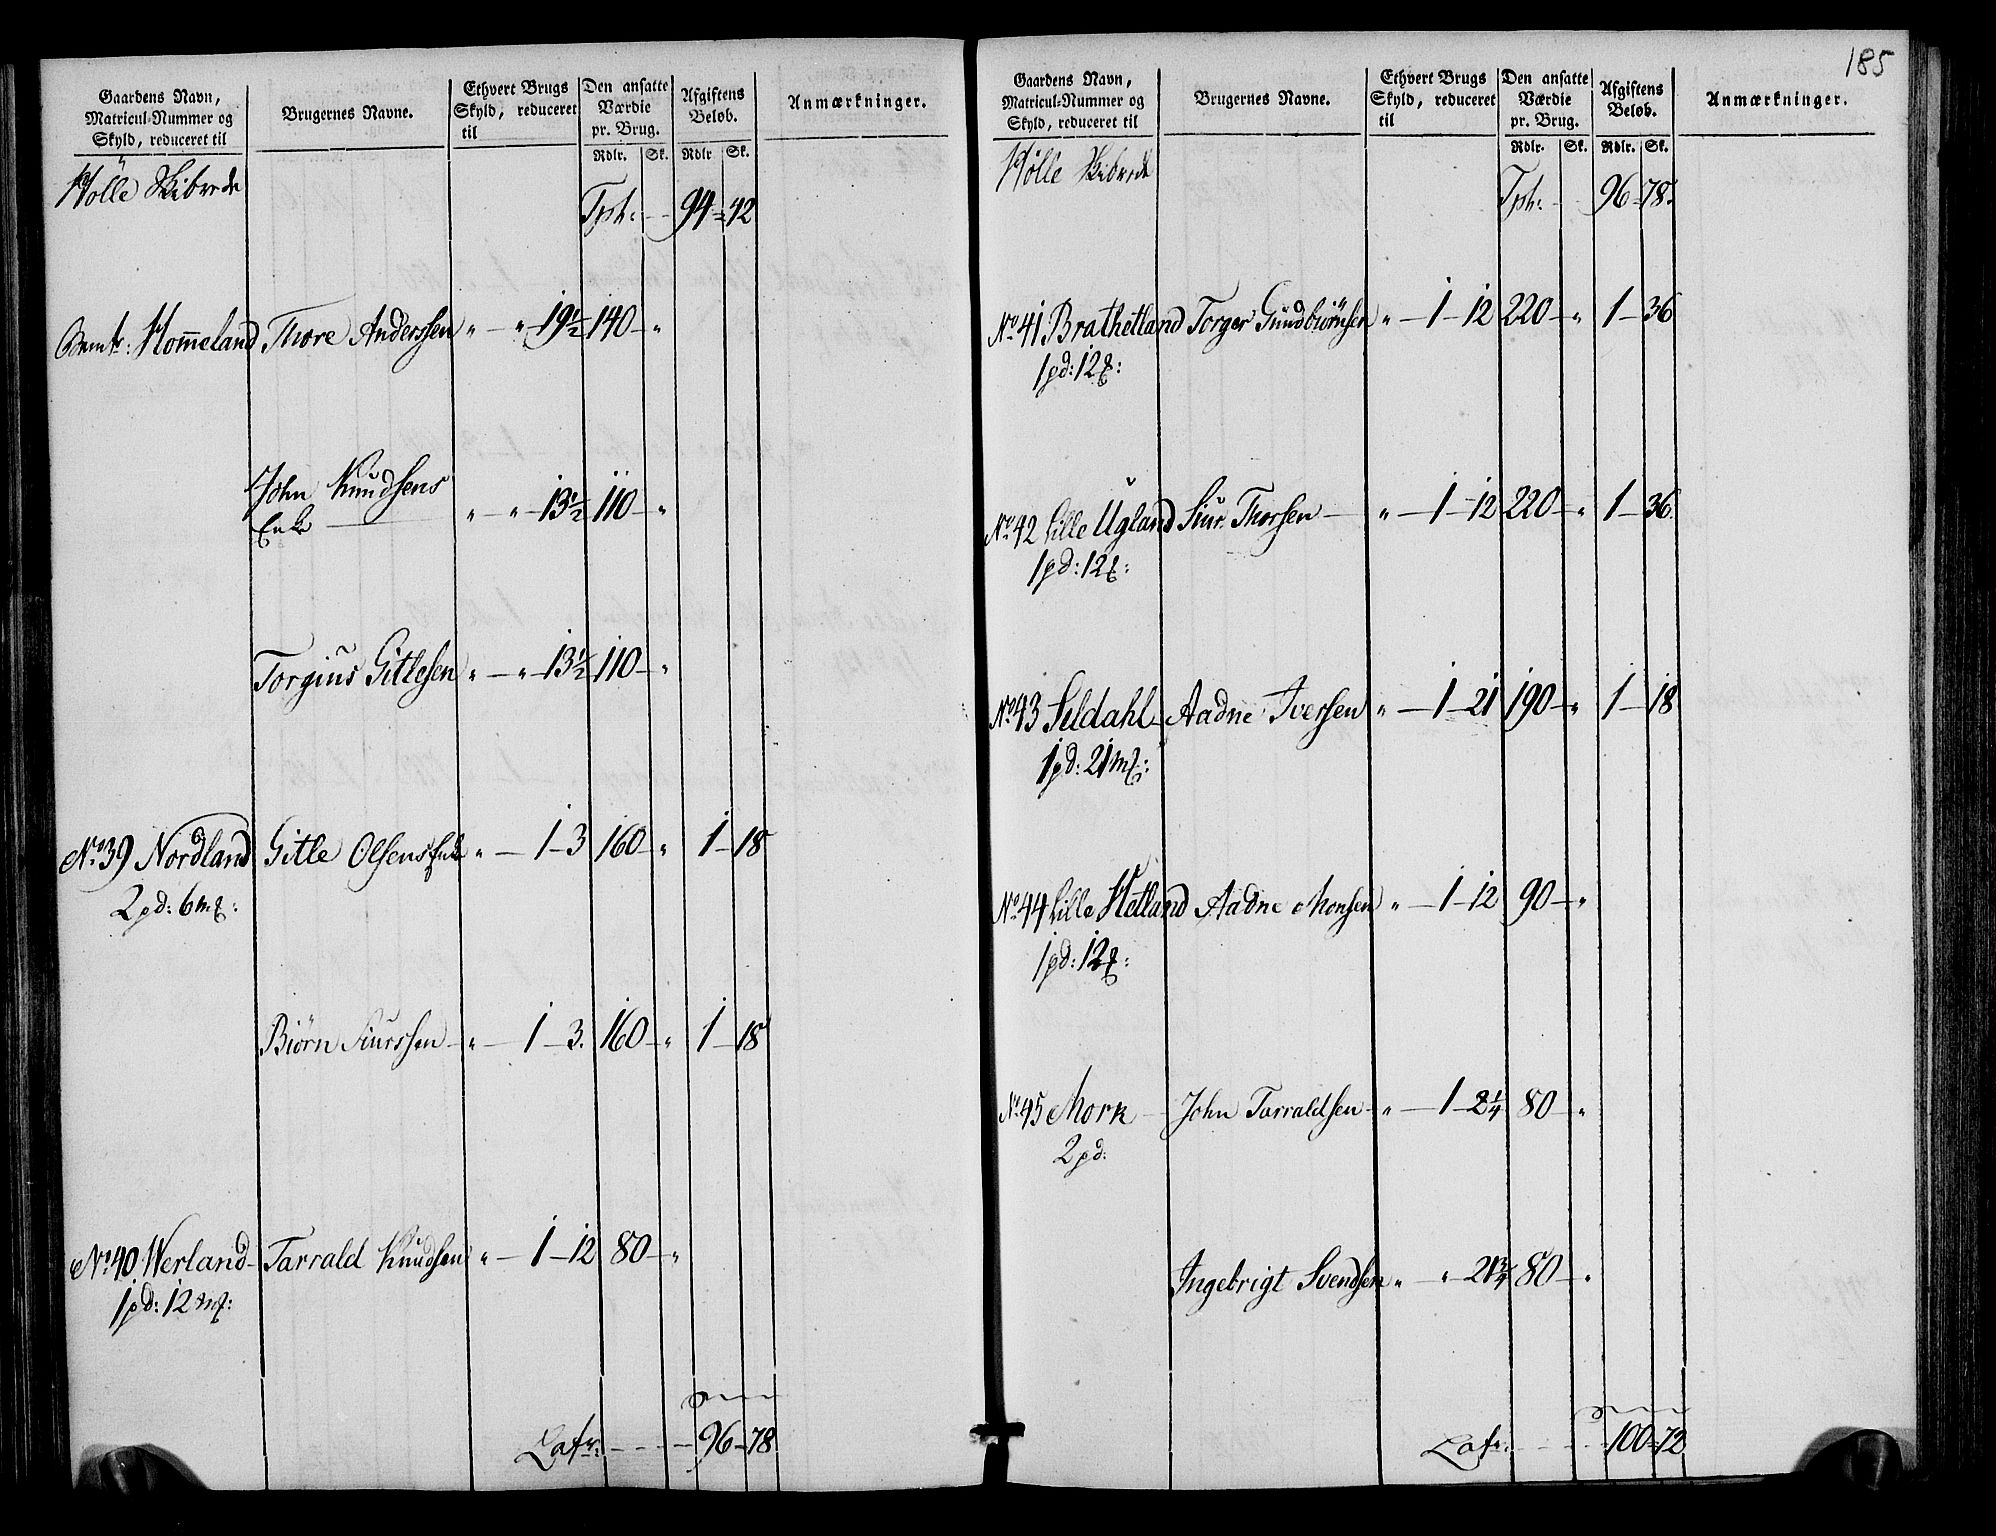 Gaardens Navn, Matricul-Nummer og Skyld, reduceret til
Brugernes Navne.
Ethvert Brugs Skyld, reduceret til
Den ansatte Værdie pr. Brug.
Afgiftens Beløb.
Anmærkninger.
Rdlr. Sk. Rdlr Sk.
Hölle Skibrede
Tpt: 94 42
Hom̄eland Thore Anderssen " " 19½ 140 "
John Knudsens Enke " " 13½ 110 "
Torgius Gitlesen " " 13½ 110 "
No 39 Nordland Gitle Olsens Enke " 1 3 160 " 1 18
2 pd: 6 m£:
Biörn Siurssen " 1 3. 160 " 1 18
No 40 Werland Tarrald Knudsen " 1 12 80 "
1 pd: 12 m£:
Latr: 96 78
185
Gaardens Navn, Matricul-Nummer og Skyld, reduceret til
Brugernes Navne.
Ethvert Brugs Skyld, reduceret til
Den ansatte Værdie pr. Brug.
Afgiftens Beløb.
Anmærkninger.
Rdlr. Sk. Rdlr. Sk.
Hölle Skibrede
Tpt: 96 78.
No 41 Brathetland Torger Gundbiörnsen " 1 12 220 " 1 36
1 pd: 12 £:
No 42 Lille Ugland Siur. Thorsen " 1 12 220 " 1 36.
1 pd: 12 £:
No 43 Seldahl Aadne Iversen " 1 21 190 " 1 18
1 pd: 21 m£:
No 44 Lille Hetland Aadne Monsen " 1 12 90 "
1 pd: 12 £:
No 45 Mork John Tarraldsen " 1 2¼ 80 "
2 pd:
Ingebrigt Svendsen " " 21¾ 80 "
Latr: 100 72